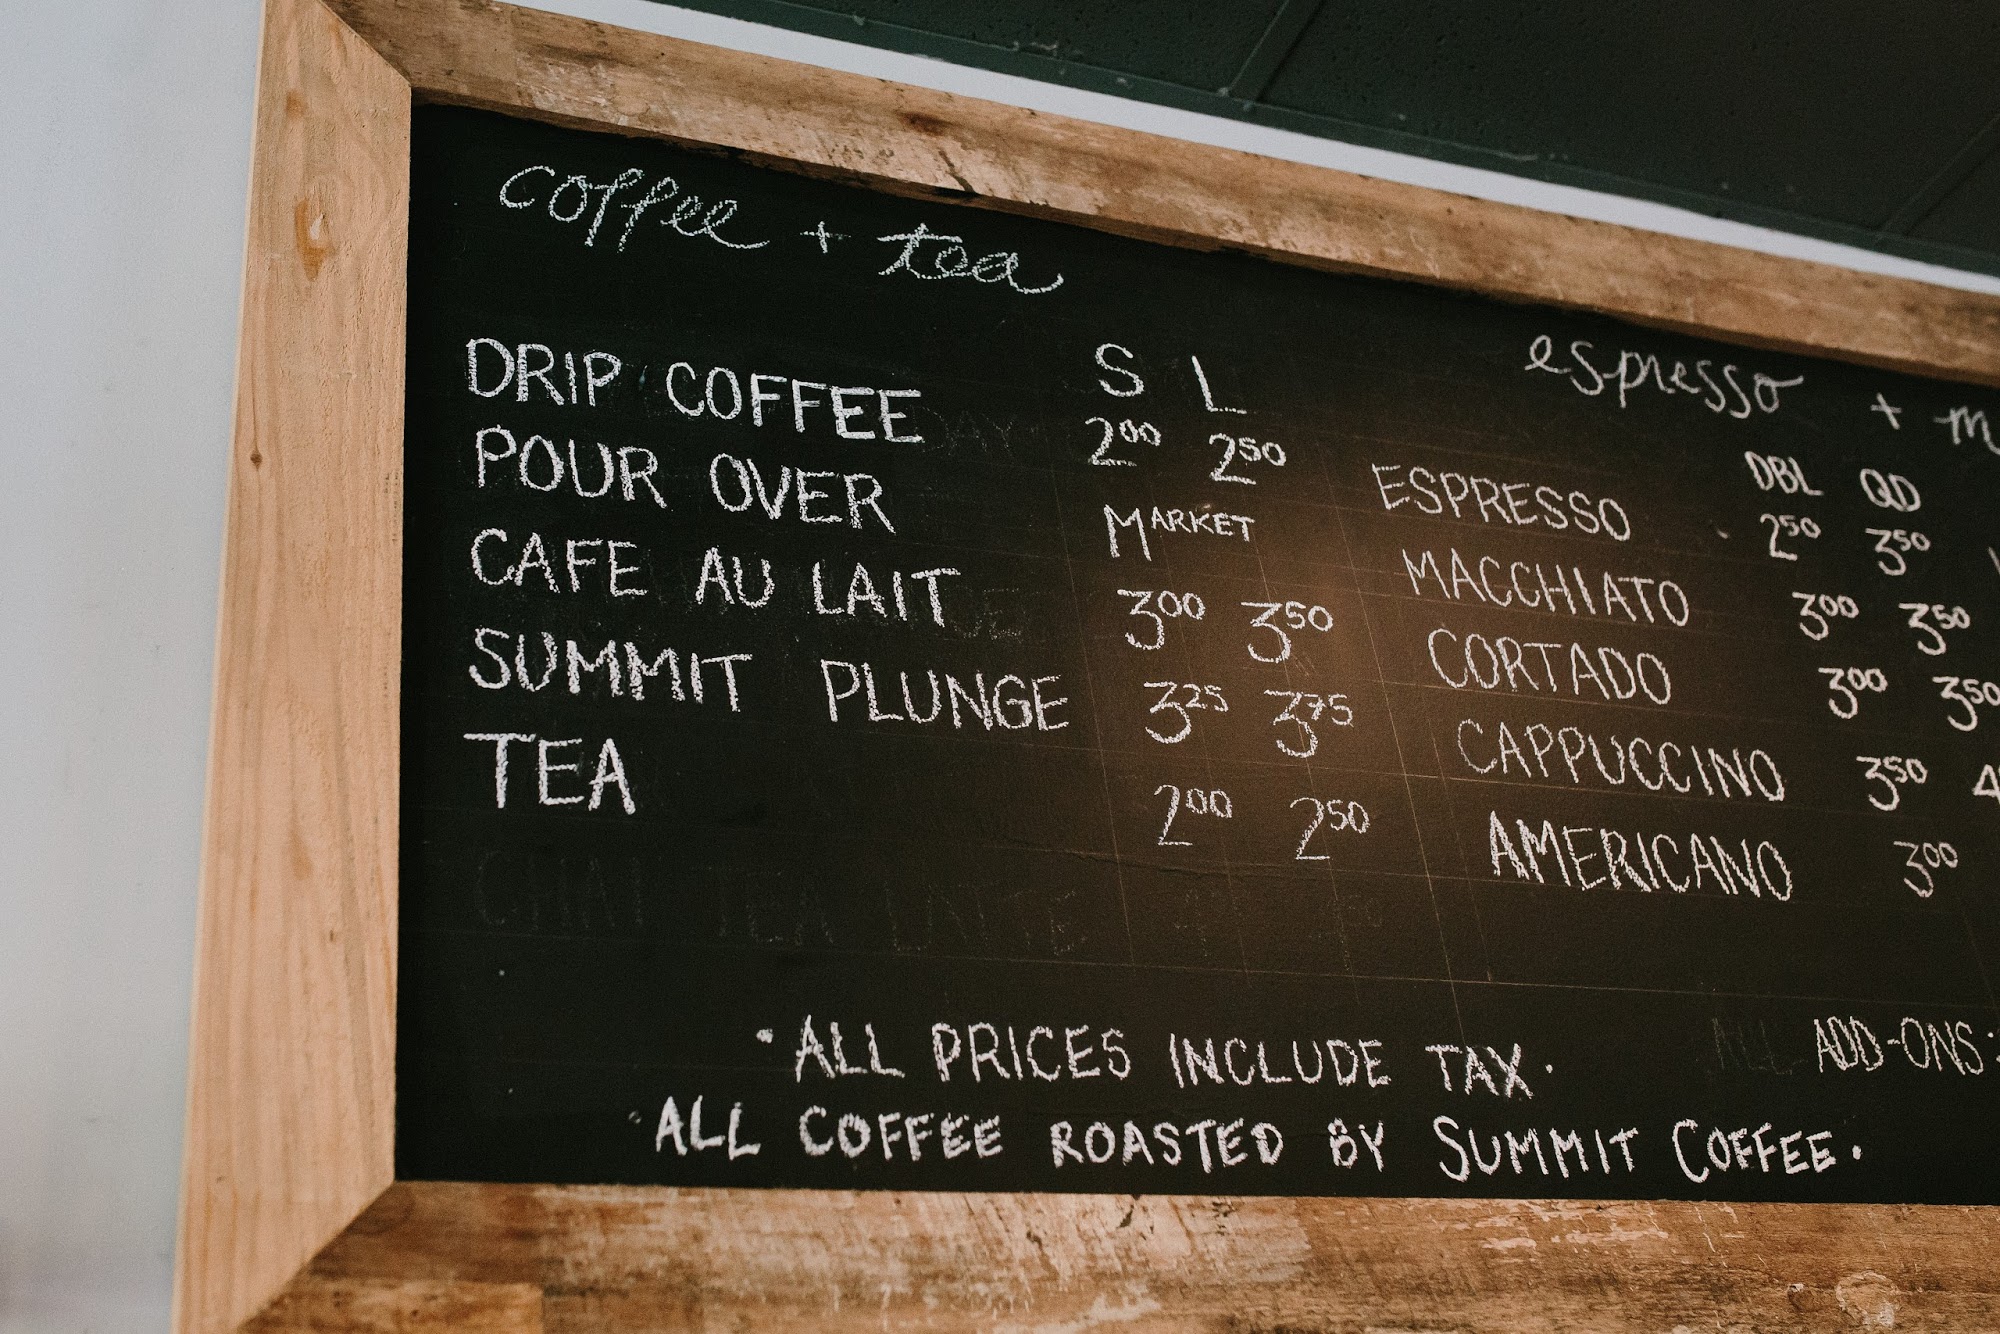 coffee + tea
S L
DRIP COFFEE 2.00 2.50
POUR OVER MARKET
CAFE AU LAIT 3.00 3.50
SUMMIT PLUNGE 3.25 3.75
TEA 2.00 2.50
espresso +
DBL QD
ESPRESSO 2.50 3.50
MACCHIATO 3.00 3.50
CORTADO 3.00 3.50
CAPPUCCINO 3.50
AMERICANO 3.00
ADD-ONS:
·ALL PRICES INCLUDE TAX·
·ALL COFFEE ROASTED BY SUMMIT COFFEE·